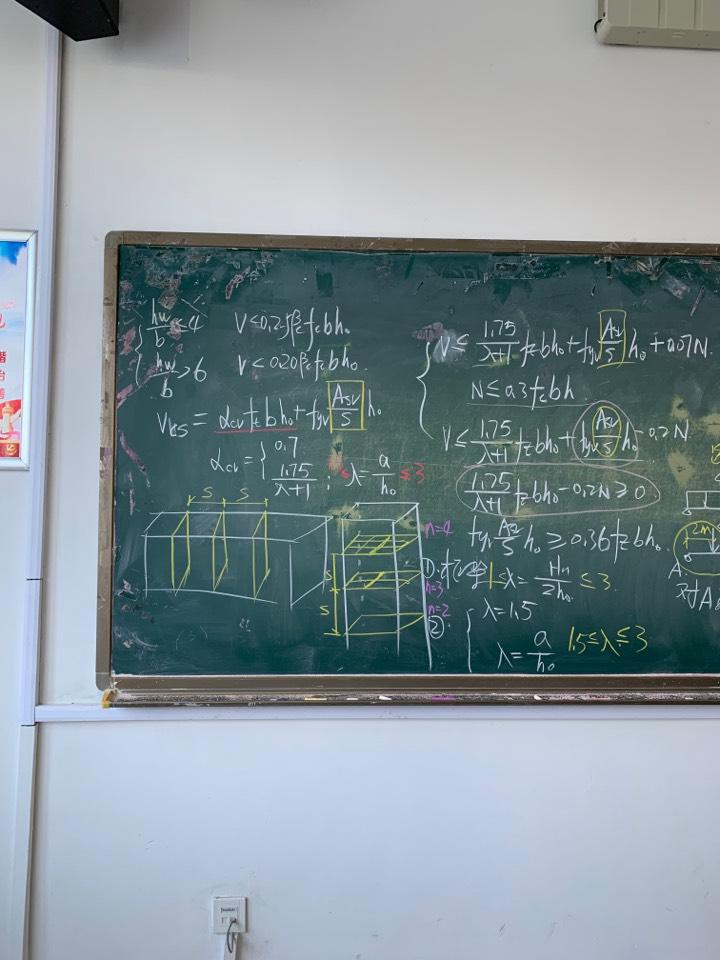 hw/b ≤ 4 V ≤ 0.25βcfcbh₀
hw/b > 6 V ≤ 0.20βcfcbh₀.
Vcs = αcv ft b h₀ + fyv Asv/s h₀
αcv = { 0.7
1.75/λ+1 ; λ = a/h₀ ≤ 3
S S
S
S
n=4
n=3
n=2
V ≤ 1.75/λ+1 ftbh₀ + fyv Asv/s h₀ + 0.07N.
N ≤ 0.3fcbh
V ≤ 1.75/λ+1 ftbh₀ + fyv Asv/s h₀ - 0.2N
1.75/λ+1 ftbh₀ - 0.2N ≥ 0.
fyv Asv/s h₀ ≥ 0.36ftbh₀.
①. 1 ≤ λ = Hn/2h₀ ≤ 3.
②. λ = 1.5
λ = a/h₀ 1.5 ≤ λ ≤ 3
2m
A
对A